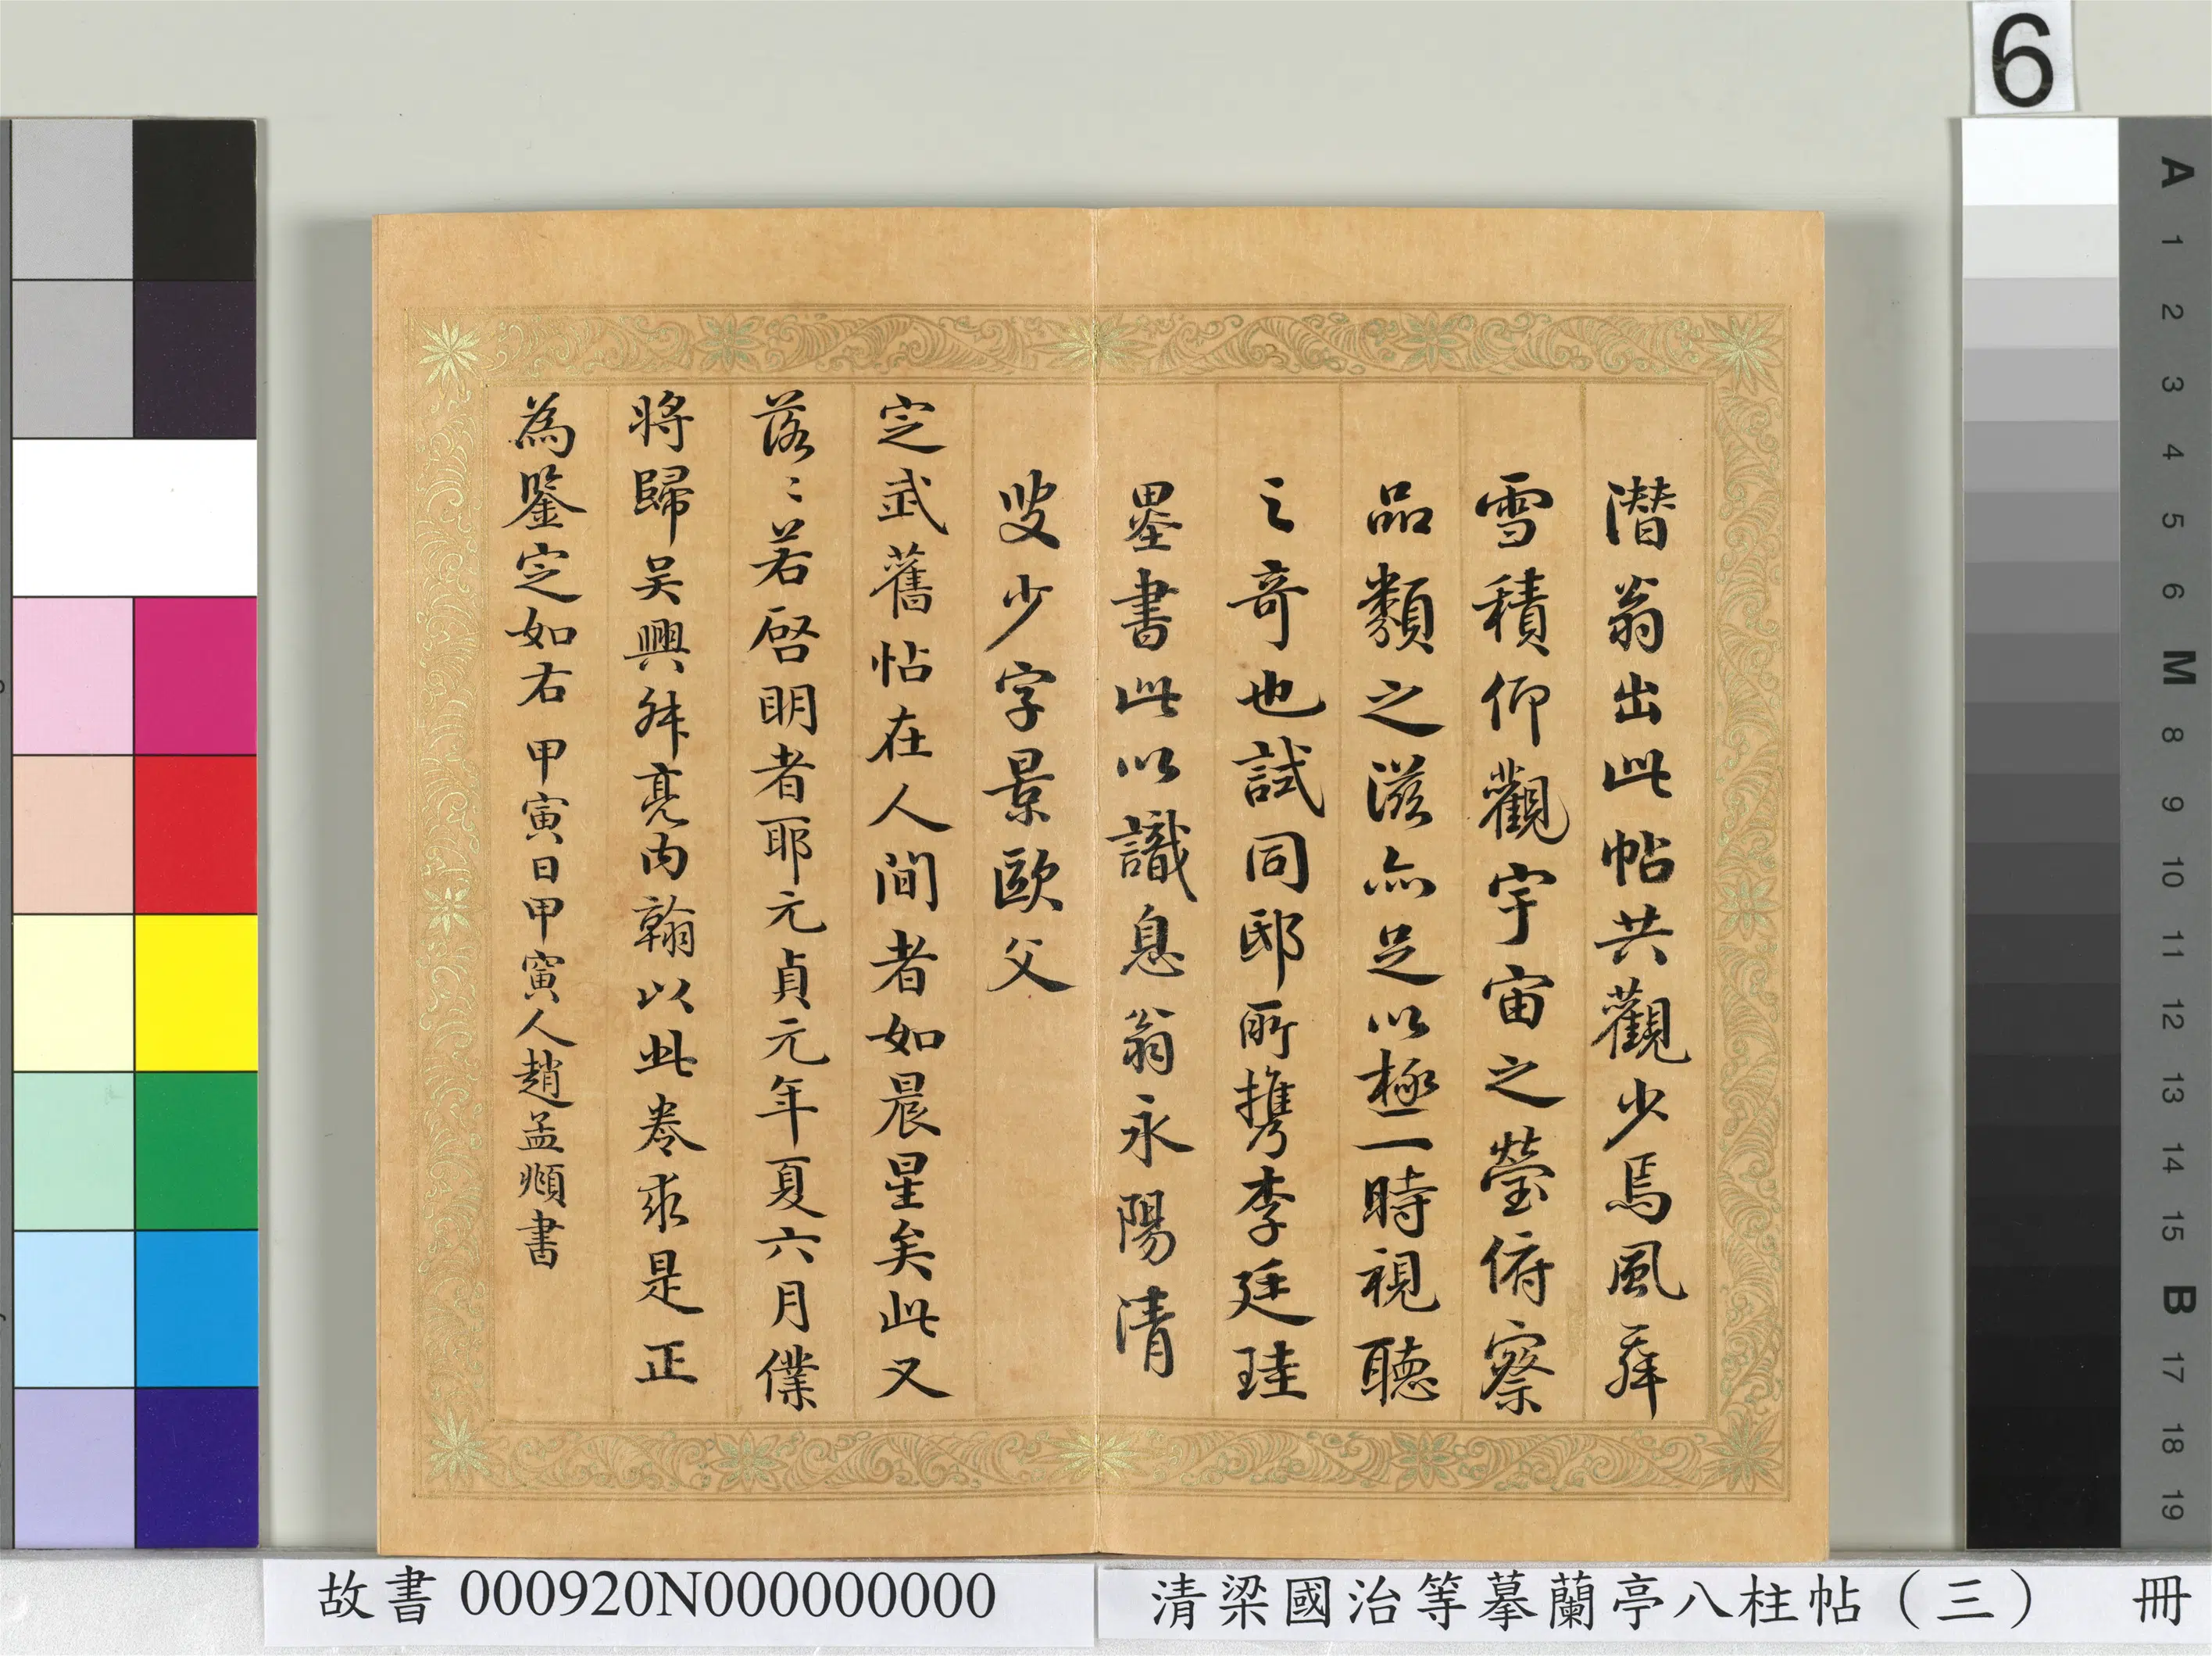 6
潛翁出此帖共觀少焉風舞
雪積仰觀宇宙之瑩俯察
品類之滋亦足以極一時視聽
之奇也試同邸所攜李廷珪
墨書此以識息翁永陽清
叟少字景歐父
定武舊帖在人間者如晨星矣此又
落〻若啓明者耶元貞元年夏六月僕
將歸吳興舛亮內翰以此卷求是正
為鑒定如右 甲寅日甲寅人趙孟頫書
A
1
2
3
4
5
6
M
8
9
10
11
12
13
14
15
B
17
18
19
故書 000920N000000000
清梁國治等摹蘭亭八柱帖（三） 冊